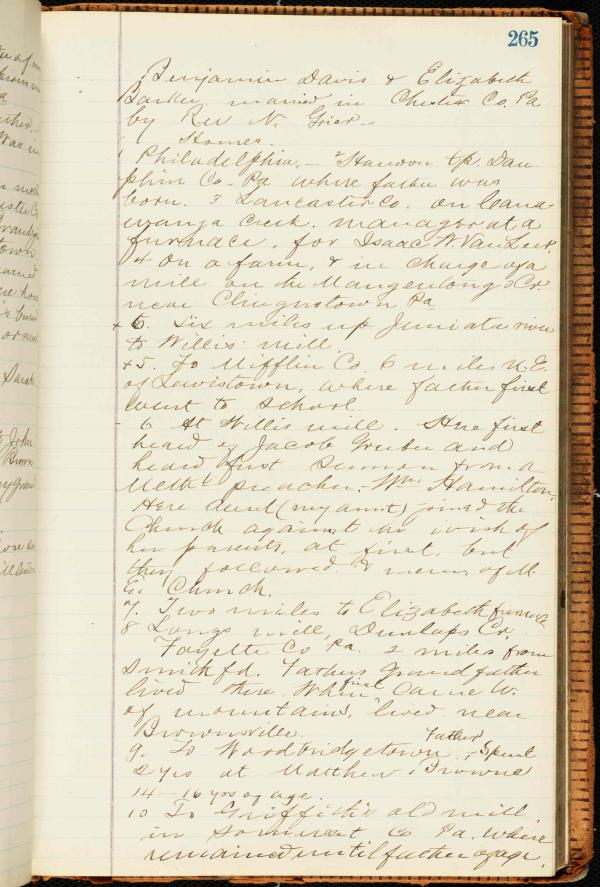 265
Benjamin Davis & Elizabeth
Barker married in Chester Co. Pa
by Rev N. Grier
Homes.
1 Philadelphia, — 2 Hanover tp. Dau-
phin Co. Pa where father was
born. 3 Lancaster Co. on Cana-
wanga Creek. manager at a
furnace, for Isaac W Van Leer.
4 On a farm, & in charge of a
mill on the Cr.
near Pa
Six miles up Juniata river
to Willis' mill
5. To Mifflin Co. 6 miles N.E.
of Lewistown, where father first
went to school.
6 At Willis mill. Here first
heard of Jacob Gruber and
heard first sermon from a
Meth. preacher, Wm Hamilton.
Here aunt (my aunt) joined the
Church against the wish of
her parents, at first, but
they followed & were of M.
E. Church.
7. Two miles to Elizabeth furnace
8 Longs mill, Dunlaps Cr.
Fayette Co Pa. 2 miles from
Smithfd. Fathers grandfather
lived there. When first came W.
of mountains, lived near
Brownsville.
9. To Woodbridgetown. Father spent
2 yrs at Matthew Browns
14 — 16 yrs of age.
10 To Griffith's old mill
in Somerset Co Pa. where
remained until father of age.